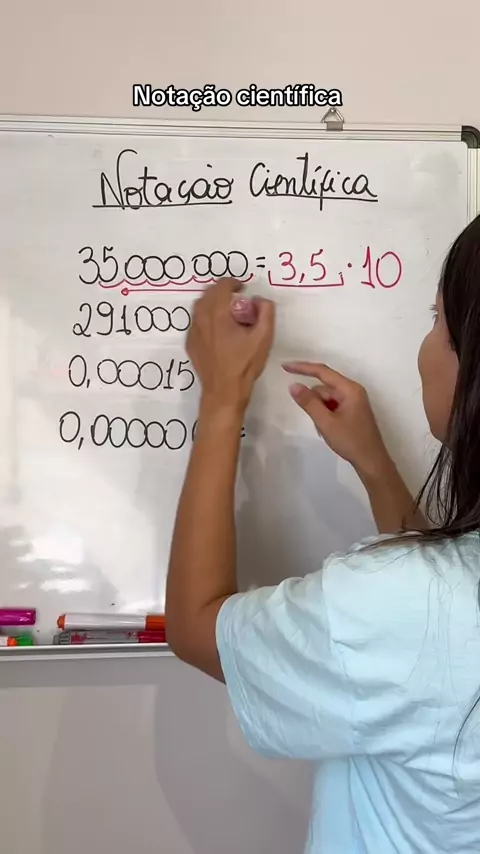 Notação científica
Notação Científica
35000000 = 3,5 · 10
291000
0,00015
0,00000 =